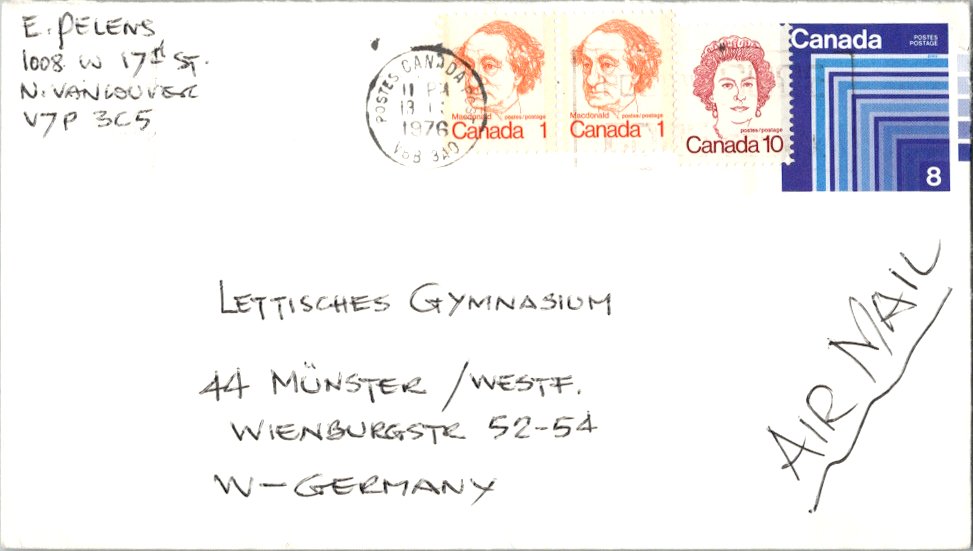 E. PELENS
1008 W 17st ST.
N. VANCOUVER
V7P 3C5
POSTES CANADA POST
11 PM
13
1976
V6B 3A0
Macdonald postes/postage
Canada 1
Macdonald postes/postage
Canada 1
postes/postage
Canada 10
Canada
POSTES
POSTAGE
8
LETTISCHES GYMNASIUM
44 MÜNSTER /WESTF.
WIENBURGSTR 52-54
W-GERMANY
AIR MAIL